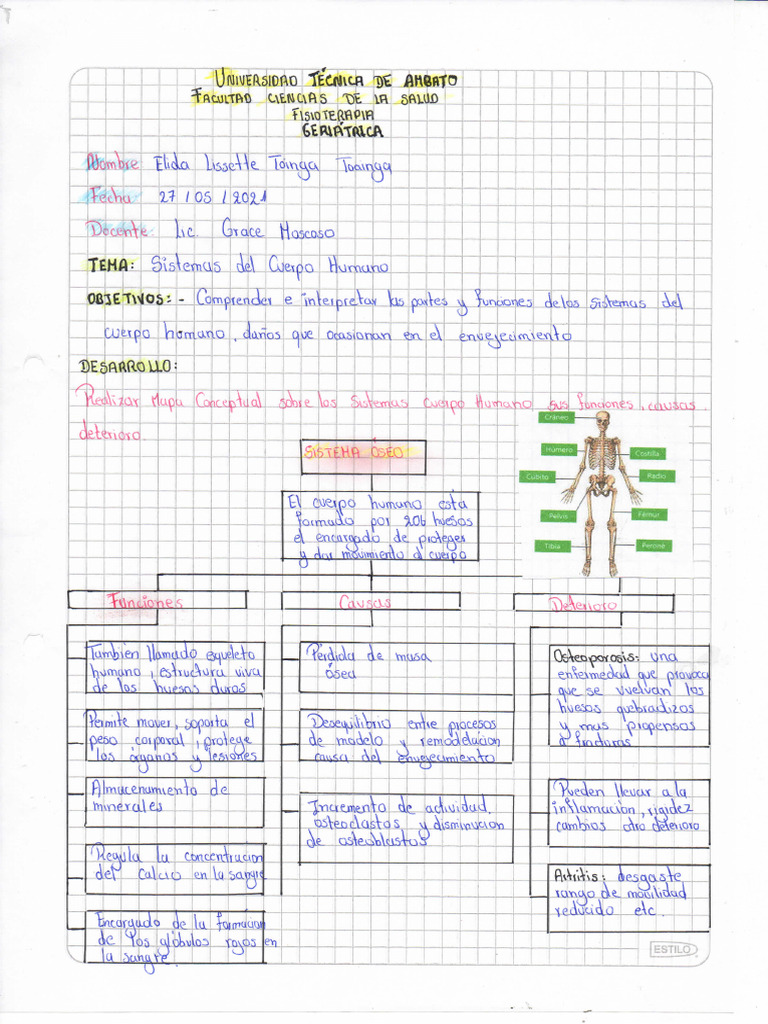 UNIVERSIDAD TÉCNICA DE AMBATO
FACULTAD CIENCIAS DE LA SALUD
FISIOTERAPIA
GERIÁTRICA
Nombre: Elida Lissette Toinga Toainga
Fecha: 27 / 05 / 2021
Docente: Lic. Grace Moscoso
TEMA: Sistemas del Cuerpo Humano
OBJETIVOS: - Comprender e interpretar las partes y funciones de los Sistemas del
cuerpo humano, daños que ocasionan en el envejecimiento
DESARROLLO:
Realizar Mapa Conceptual sobre los Sistemas Cuerpo Humano sus funciones, causas
deterioro.
SISTEMA ÓSEO
El cuerpo humano está
formado por 206 huesos
el encargado de proteger
y dar movimiento d cuerpo
Cráneo
Húmero
Costilla
Cúbito
Radio
Pelvis
Fémur
Tibia
Peroné
Funciones
También llamado esqueleto
humano, estructura viva
de los huesos duros
Permite mover, soporta el
peso corporal, protege
los órganos y lesiones
Almacenamiento de
minerales
Regula la concentración
del calcio en la sangre
Encargado de la formacion
de los glóbulos rojos en
la sangre.
Causas
Pérdida de masa
ósea
Desequilibrio entre procesos
de modelo y remodelucion
causa del envejecimiento
Incremento de actividad.
osteoclastos y disminucion
de osteoblastos
Deterioro
Osteoporosis: una
enfermedad que provoca
que se vuelvan los
huesos quebradizos
y mas propensos
a fracturas
Pueden llevar a la
inflamación, rigidez
cambios otro deterioro
Artritis: desgaste
rango de movilidad
reducido etc.
ESTILO